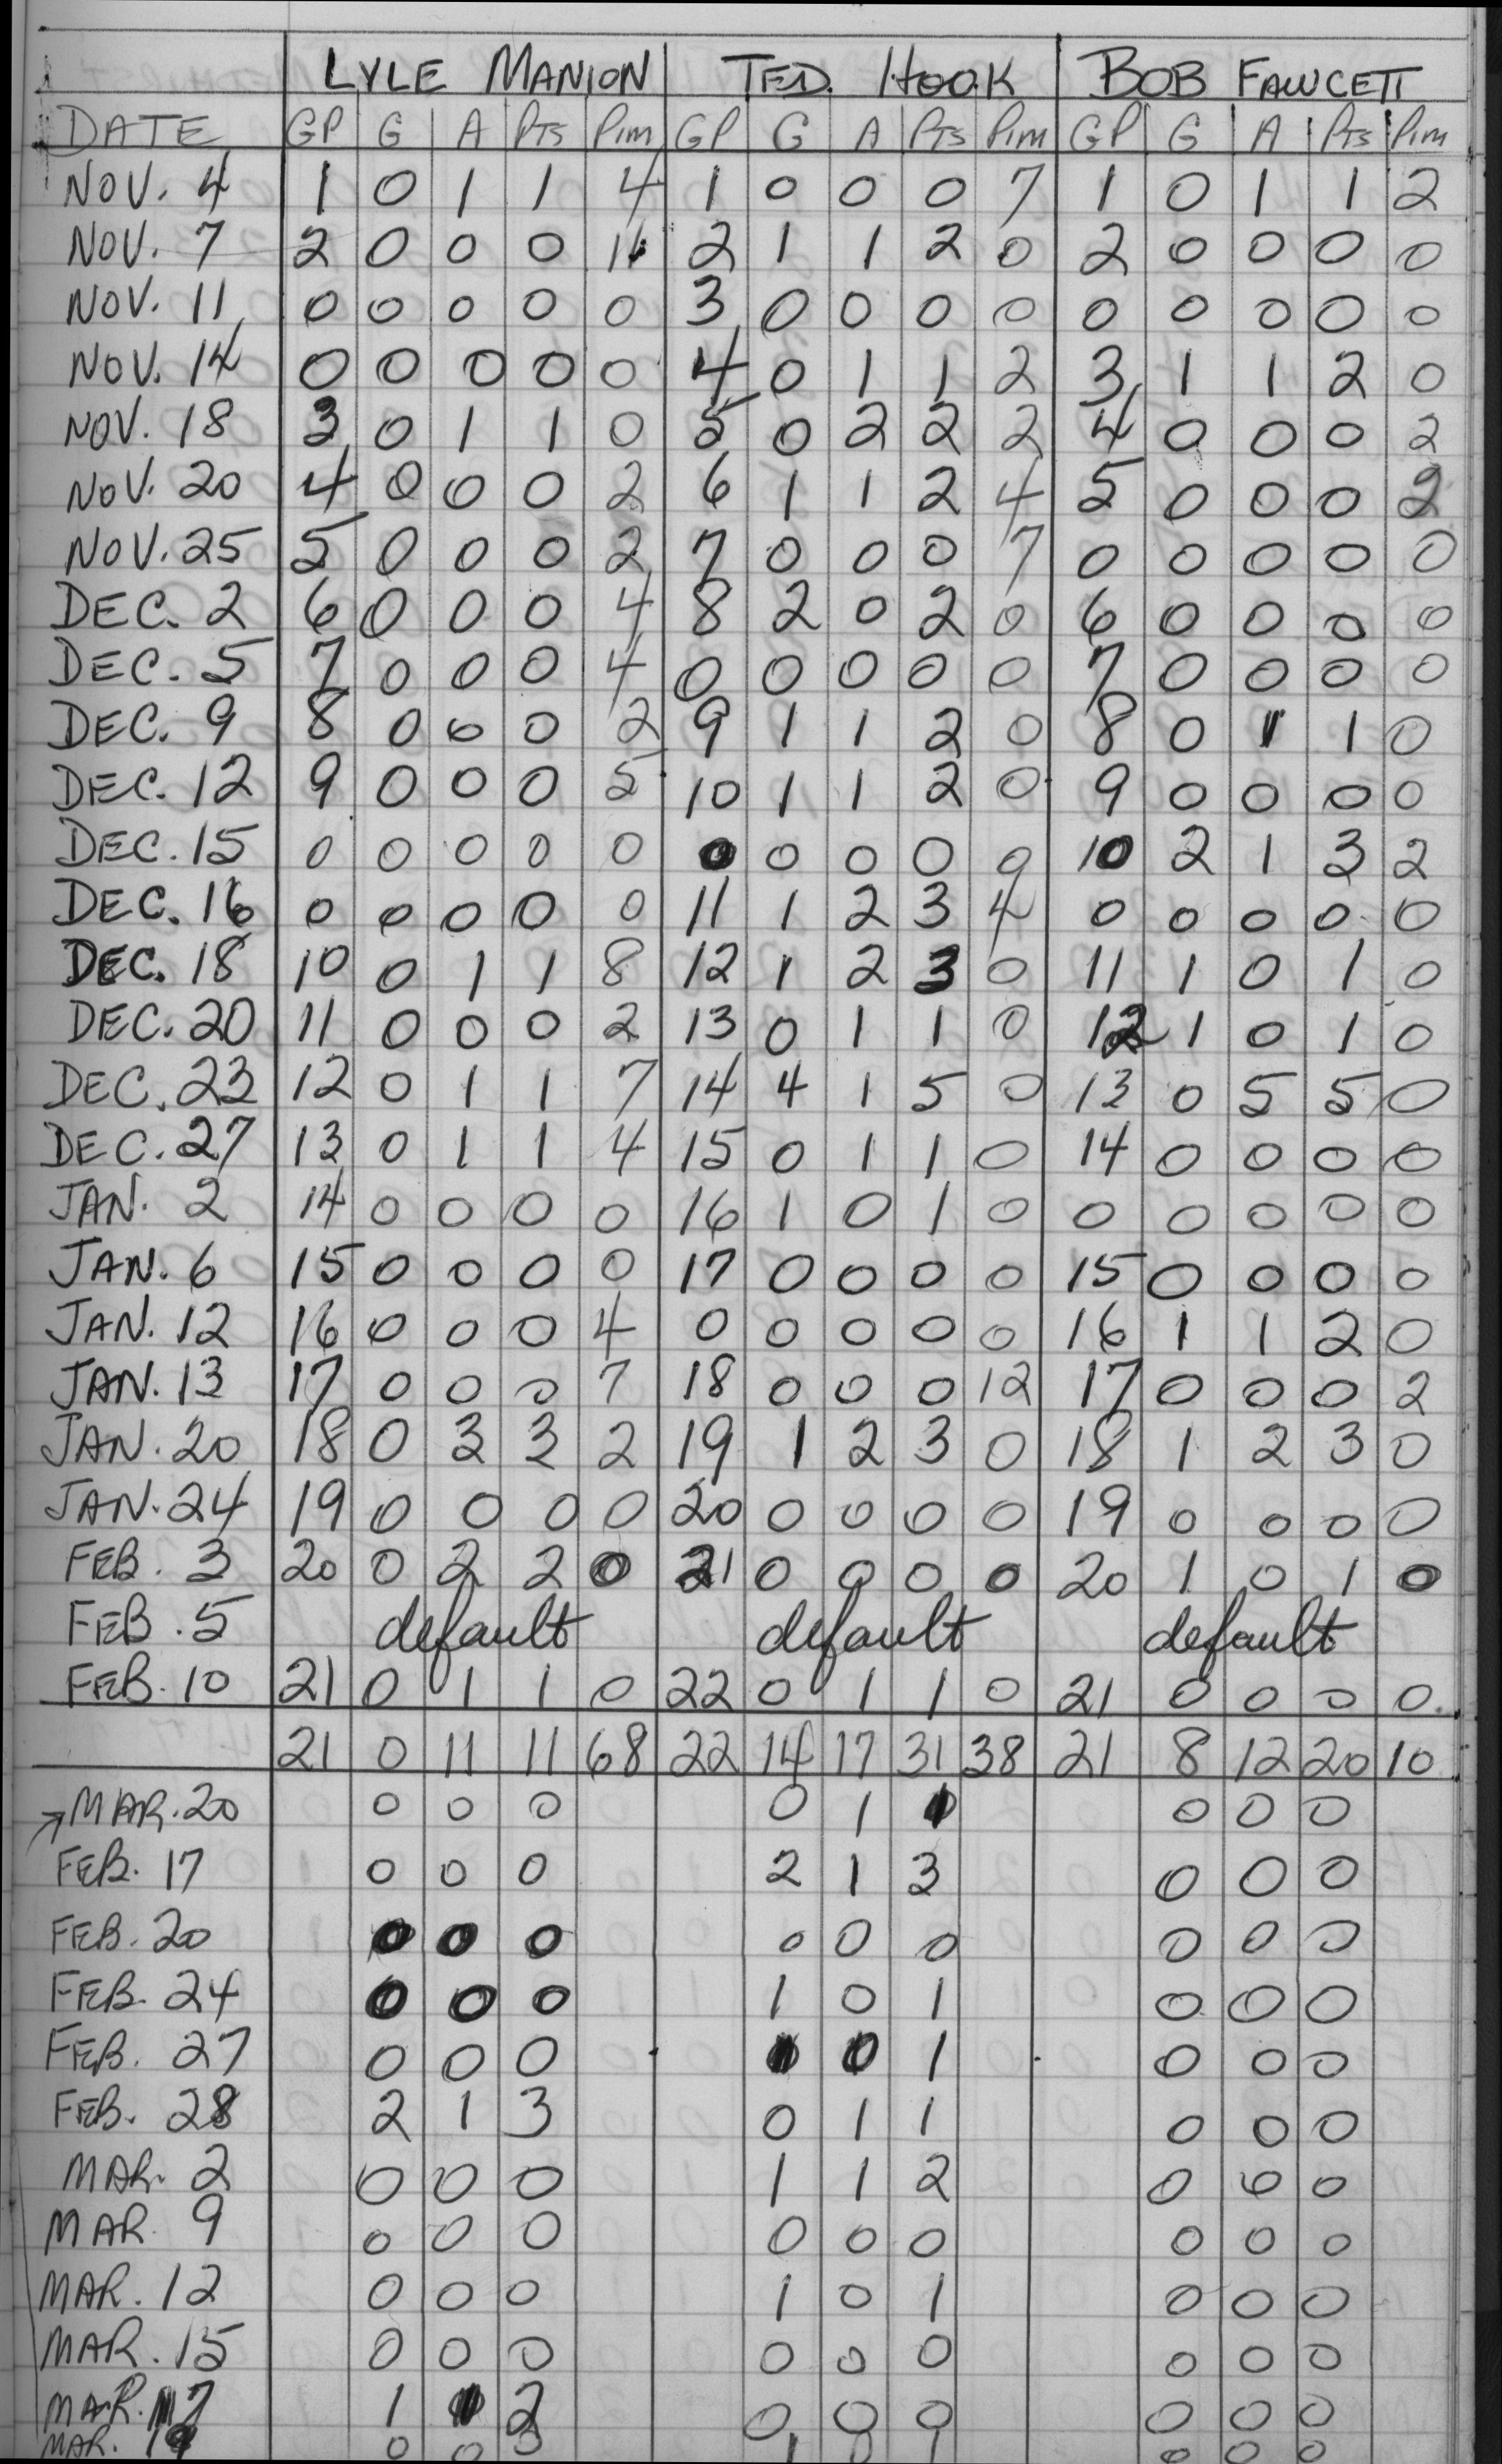 LYLE MANION TED. HOOK BOB FAWCETT
DATE GP G A PTS PIM GP G A PTS PIM GP G A PTS PIM
NOV. 4 1 0 1 1 4 1 0 0 0 7 1 0 1 1 2
NOV. 7 2 0 0 0 11 2 1 1 2 0 2 0 0 0 0
NOV. 11 0 0 0 0 0 3 0 0 0 0 0 0 0 0 0
NOV. 14 0 0 0 0 0 4 0 1 1 2 3 1 1 2 0
NOV. 18 3 0 1 1 0 5 0 2 2 2 4 0 0 0 2
NOV. 20 4 0 0 0 2 6 1 1 2 4 5 0 0 0 2
NOV. 25 5 0 0 0 2 7 0 0 0 7 0 0 0 0 0
DEC. 2 6 0 0 0 4 8 2 0 2 0 6 0 0 0 0
DEC. 5 7 0 0 0 4 0 0 0 0 0 7 0 0 0 0
DEC. 9 8 0 0 0 2 9 1 1 2 0 8 0 1 1 0
DEC. 12 9 0 0 0 5 10 1 1 2 0 9 0 0 0 0
DEC. 15 0 0 0 0 0 0 0 0 0 0 10 2 1 3 2
DEC. 16 0 0 0 0 0 11 1 2 3 4 0 0 0 0 0
DEC. 18 10 0 1 1 8 12 1 2 3 0 11 1 0 1 0
DEC. 20 11 0 0 0 2 13 0 1 1 0 12 1 0 1 0
DEC. 23 12 0 1 1 7 14 4 1 5 0 13 0 5 5 0
DEC. 27 13 0 1 1 4 15 0 1 1 0 14 0 0 0 0
JAN. 2 14 0 0 0 0 16 1 0 1 0 0 0 0 0 0
JAN. 6 15 0 0 0 0 17 0 0 0 0 15 0 0 0 0
JAN. 12 16 0 0 0 4 0 0 0 0 0 16 1 1 2 0
JAN. 13 17 0 0 0 7 18 0 0 0 12 17 0 0 0 2
JAN. 20 18 0 3 3 2 19 1 2 3 0 18 1 2 3 0
JAN. 24 19 0 0 0 0 20 0 0 0 0 19 0 0 0 0
FEB. 3 20 0 2 2 0 21 0 0 0 0 20 1 0 1 0
FEB. 5 default default default
FEB. 10 21 0 1 1 0 22 0 1 1 0 21 0 0 0 0
21 0 11 11 68 22 14 17 31 38 21 8 12 20 10
→ MAR. 20 0 0 0 0 1 1 0 0 0
FEB. 17 0 0 0 2 1 3 0 0 0
FEB. 20 0 0 0 0 0 0 0 0 0
FEB. 24 0 0 0 1 0 1 0 0 0
FEB. 27 0 0 0 1 0 1 0 0 0
FEB. 28 2 1 3 0 1 1 0 0 0
MAR. 2 0 0 0 1 1 2 0 0 0
MAR. 9 0 0 0 0 0 0 0 0 0
MAR. 12 0 0 0 1 0 1 0 0 0
MAR. 15 0 0 0 0 0 0 0 0 0
MAR. 17 1 1 2 0 0 0 0 0 0
MAR. 19 0 0 0 1 0 1 0 0 0